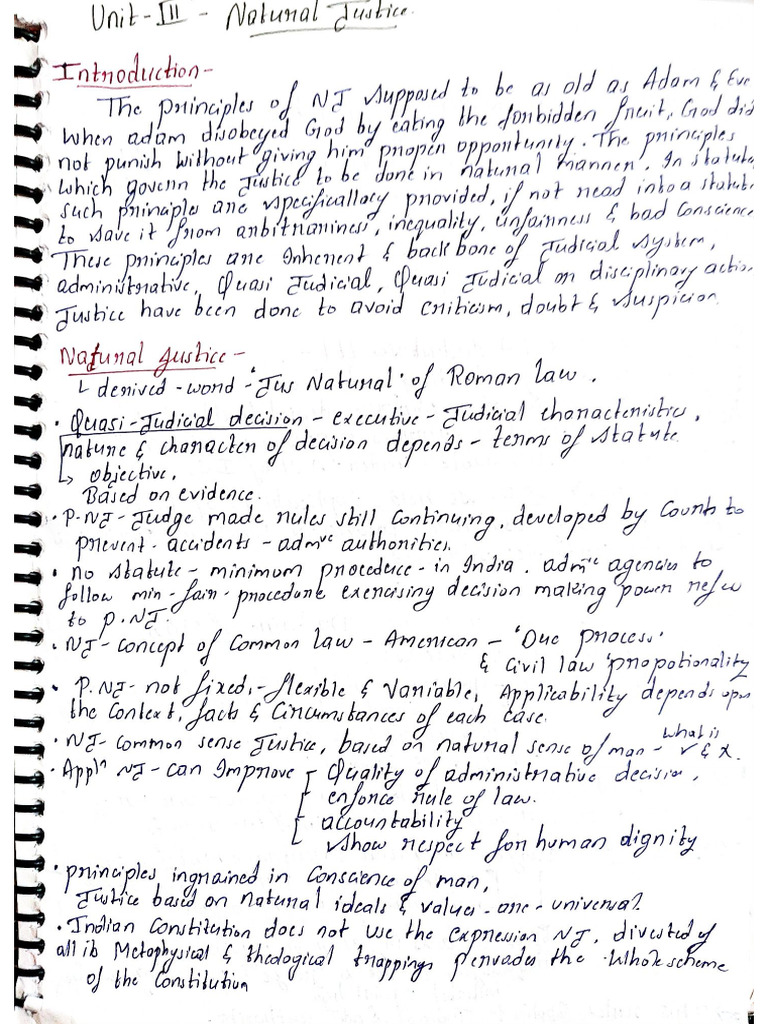 Unit-III - Natural Justice.
Introduction-
The principles of NJ supposed to be as old as Adam & Eve
When adam disobeyed God by eating the forbidden fruit, God did
not punish without giving him proper opportunity. The principles
which govern the Justice to be done in natural manner. In statute
such principles are specifically provided, if not read into a statute
to save it from arbitrariness, inequality, unfairness & bad Conscience
These principles are Inherent & back bone of Judicial system,
administrative, Quasi Judicial, Quasi Judicial or disciplinary action.
Justice have been done to avoid criticism, doubt & suspicion.
Natural Justice -
derived - word - 'Jus Natural' of Roman law.
• Quasi-Judicial decision - executive - Judicial characteristics,
nature & character of decision depends - terms of statute.
objective.
Based on evidence.
• P.NJ - Judge made rules still continuing, developed by Courts to
prevent - accidents - admve authorities.
• no statute - minimum procedure - in India. admve agencies to
follow min - fair - procedure exercising decision making power refer
to P.NJ.
• NJ - concept of Common law - American - 'Due process'
& Civil law 'propotionality
• P.NJ - not fixed, - flexible & Variable, Applicability depends upon
the Context, facts & Circumstances of each case.
• NJ - Common sense Justice, based on natural sense of man - what is ✓ & x.
• Appln NJ - can Improve - Quality of administrative decision,
enforce rule of law.
accountability
show respect for human dignity
• principles ingrained in Conscience of man,
Justice based on natural ideals & values - are - universal.
• Indian Constitution does not use the expression NJ, divested of
all it Metaphysical & theological trappings pervades the whole scheme
of the Constitution